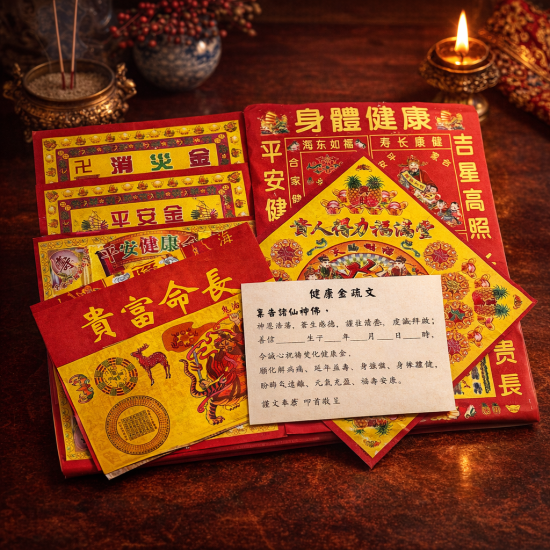 身體健康
海东如福
寿长康健
平安健
合家
吉星高照
卍 消火金
平安金
平安健康金
貴富命長
貴人得力福滿堂
健康金疏文
稟告諸仙神佛，
神恩浩蕩，眾生感德，謹 虔誠拜啟；
善信______生于___年___月___日___時，
今誠心祝禱焚化健康金，
願化解病痛、延年益壽、身強 、身體 健，
盼 遠離、元氣充盈、福壽安康。
謹文奉 叩首敬呈
贵長